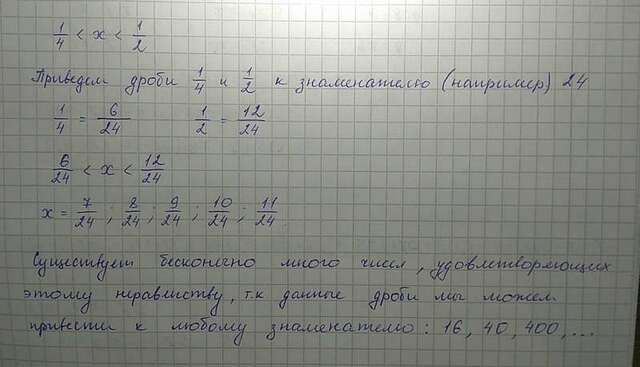 1/4 < x < 1/2
Приведем дроби 1/4 и 1/2 к знаменателю (например) 24
1/4 = 6/24 1/2 = 12/24
6/24 < x < 12/24
x = 7/24 ; 8/24 ; 9/24 ; 10/24 ; 11/24
Существует бесконечно много чисел, удовлетворяющих
этому неравенству, т.к данные дроби мы можем
привести к любому знаменателю : 16, 40, 400, ...